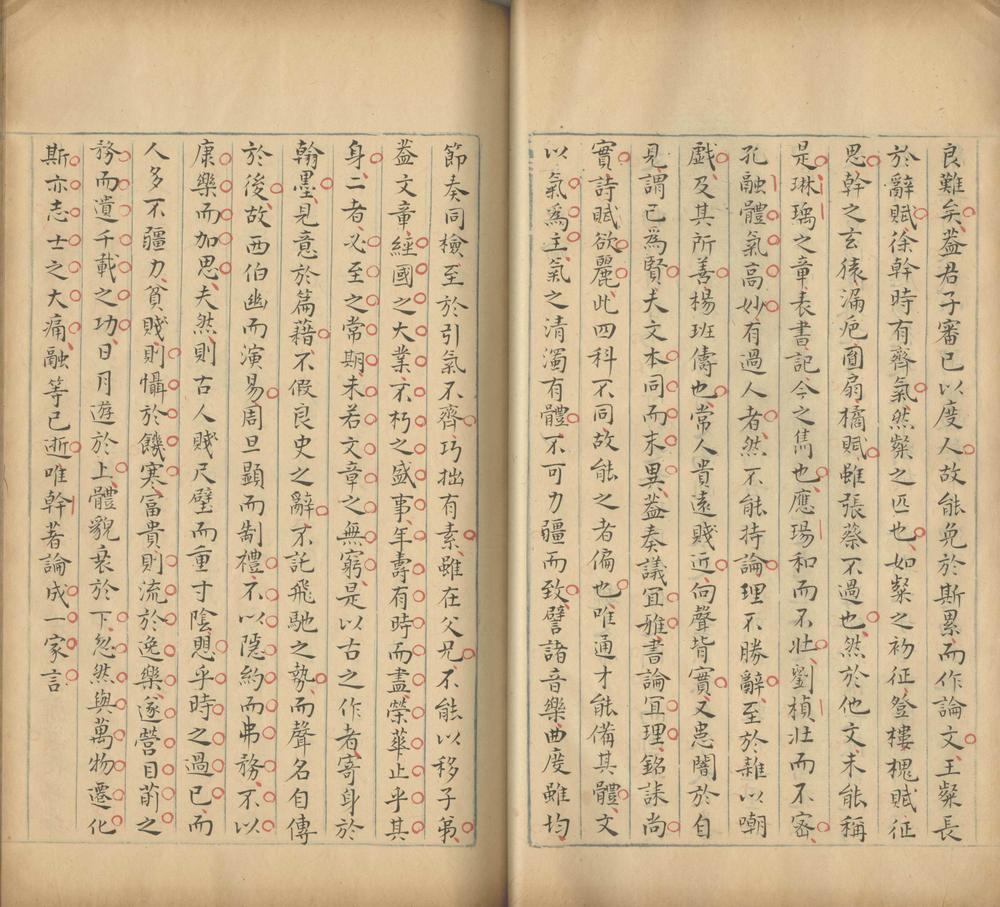 良難矣蓋君子審己以度人故能免於斯累而作論文王粲長
於辭賦徐幹時有齊氣然粲之匹也如粲之初征登樓槐賦征
思幹之玄猿漏卮圓扇橘賦雖張蔡不過也然於他文未能稱
是琳瑀之章表書記今之雋也應瑒和而不壯劉楨壯而不密
孔融體氣高妙有過人者然不能持論理不勝辭至於雜以嘲
戲及其所善楊班儔也常人貴遠賤近向聲背實又患闇於自
見謂己為賢夫文本同而末異蓋奏議宜雅書論宜理銘誄尚
實詩賦欲麗此四科不同故能之者偏也唯通才能備其體文
以氣為主氣之清濁有體不可力彊而致譬諸音樂曲度雖均
節奏同檢至於引氣不齊巧拙有素雖在父兄不能以移子弟
蓋文章經國之大業不朽之盛事年壽有時而盡榮華止乎其
身二者必至之常期未若文章之無窮是以古之作者寄身於
翰墨見意於篇藉不假良史之辭不託飛馳之勢而聲名自傳
於後故西伯幽而演易周旦顯而制禮不以隱約而弗務不以
康樂而加思夫然則古人賤尺璧而重寸陰懼乎時之過已而
人多不彊力貧賤則懾於饑寒富貴則流於逸樂遂營目前之
務而遺千載之功日月遊於上體貌衰於下忽然與萬物遷化
斯亦志士之大痛融等已逝唯幹著論成一家言